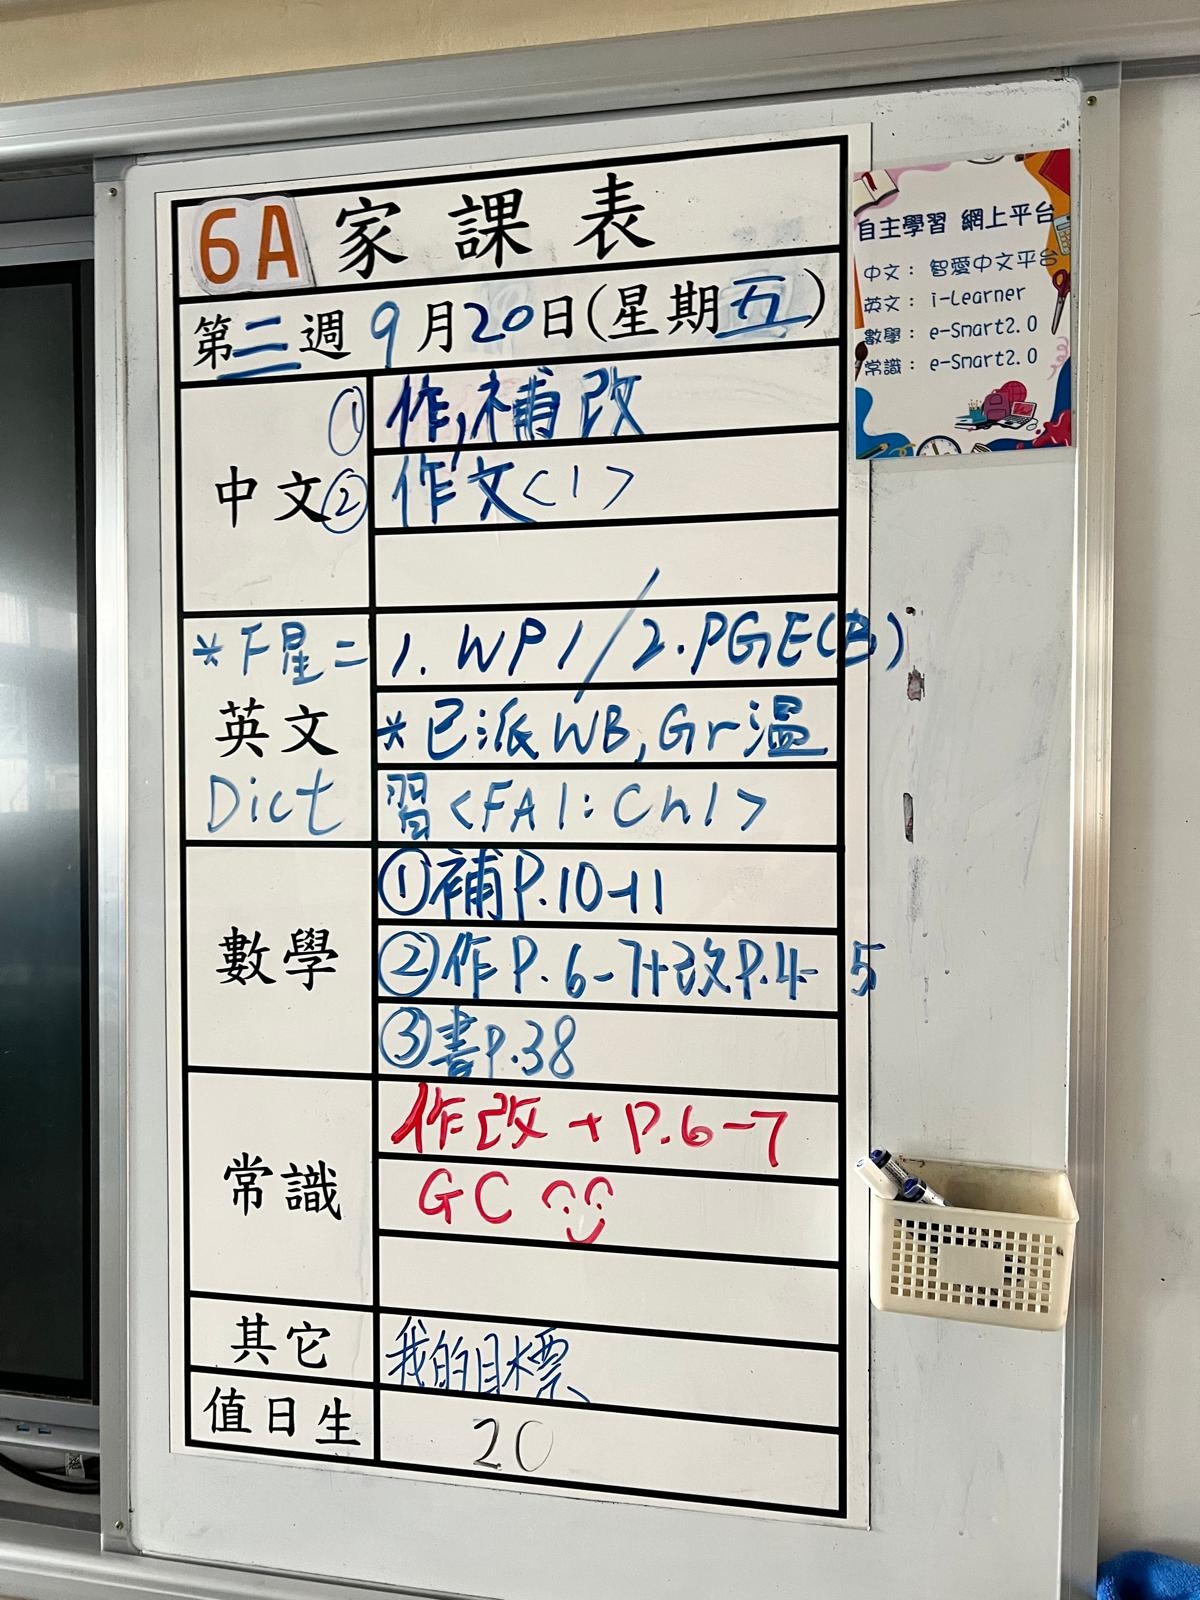 6A 家課表
第二週 9月20日(星期五)
中文
① 作,補改
② 作文<1>
英文
*下星二 Dict
1. WP1 / 2. PGE(B)
*已派WB, Gr溫
習<FA1: Ch1>
數學
①補P.10-11
②作P.6-7+改P.4-5
③書P.38
常識
作改 + P.6-7
GC
其它
我的目標
值日生
20
自主學習 網上平台
中文： 智愛中文平台
英文： i-Learner
數學： e-Smart2.0
常識： e-Smart2.0